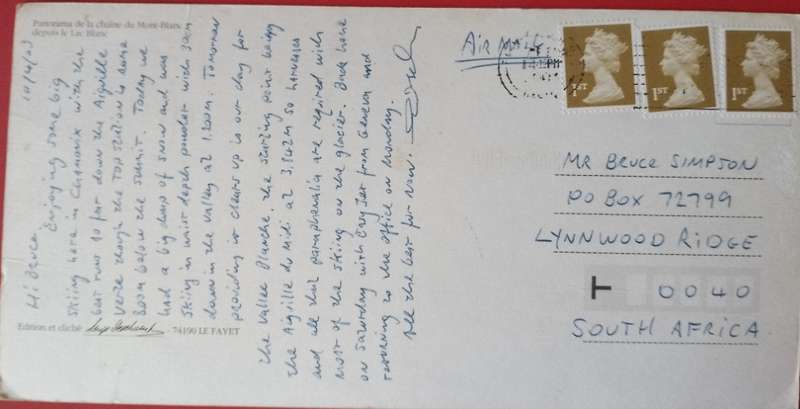 Panorama de la chaîne du Mont-Blanc
depuis le Lac Blanc
10/4/03
Hi Bruce,
Enjoying some big
skiing here in Chamonix with the
best runs so far down the Aiguille
Verte though the top station is some
800m below the summit. Today we
had a big dump of snow and was
skiing in waist depth powder with 30cm
down in the valley at 1,200m. Tomorrow
providing it clears up is our day for
the Vallee Blanche the starting point being
the Aiguille du Midi at 3,842m so harnesses
and all that paraphernalia are required with
most of the skiing on the glacier. Back home
on Saturday with EasyJet from Geneva and
returning to the office on Monday.
All the best for now.
Edition et cliché - 74190 LE FAYET
AIR MAIL
1ST
1ST
1ST
MR BRUCE SIMPSON
PO BOX 72799
LYNNWOOD RIDGE
T 0040
SOUTH AFRICA